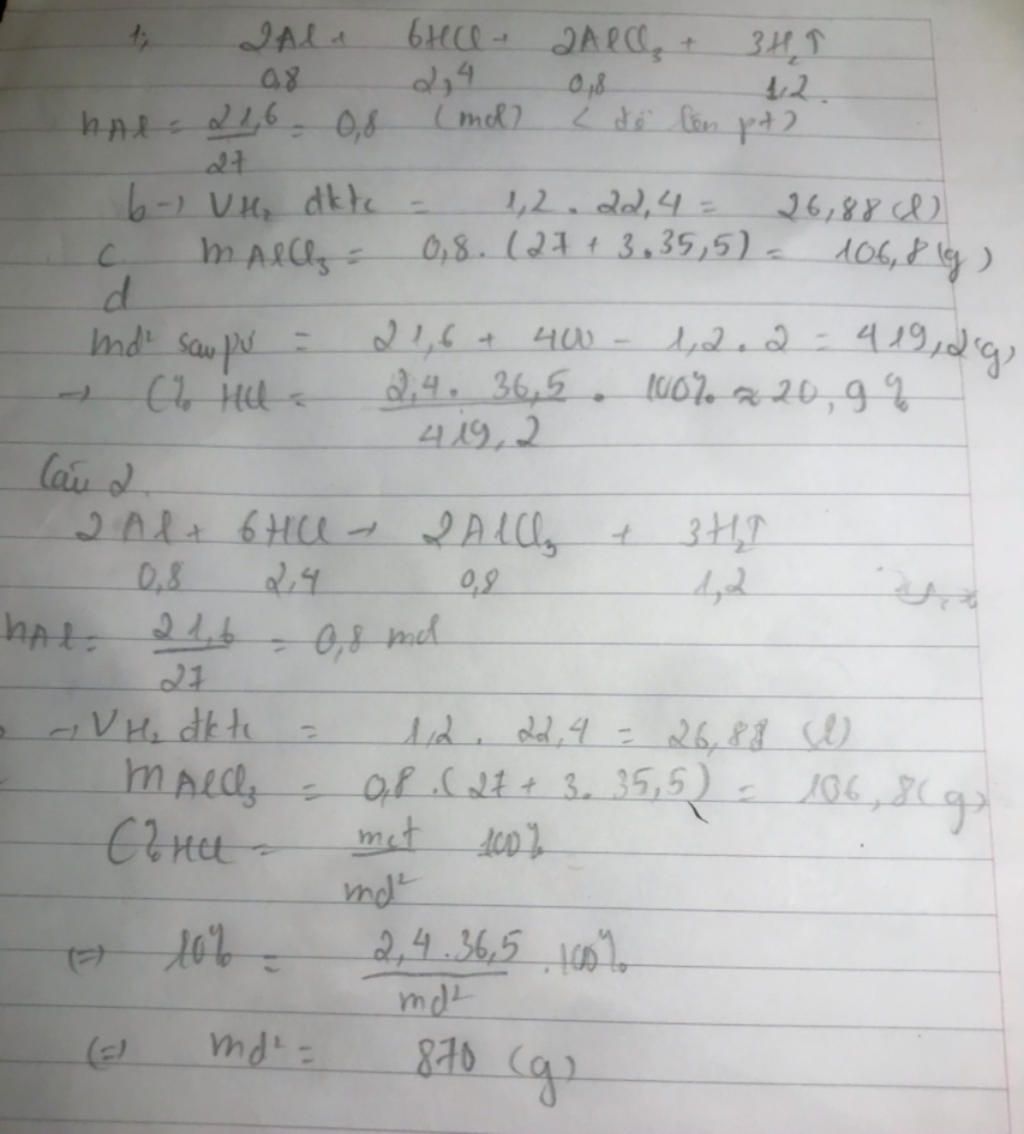 1; 2Al + 6HCl → 2AlCl₃ + 3H₂↑
0,8 2,4 0,8 1,2.
nAl = 21,6/27 = 0,8 (mol) ( để lên pt)
b → VH₂ đktc = 1,2 . 22,4 = 26,88 (l)
c mAlCl₃ = 0,8 . (27 + 3.35,5) = 106,8 (g)
d
md² sau pư = 21,6 + 400 - 1,2 . 2 = 419,2 (g)
→ C% HCl = 2,4 . 36,5/419,2 . 100% ≈ 20,9 %
Câu 2.
2Al + 6HCl → 2AlCl₃ + 3H₂↑
0,8 2,4 0,8 1,2
nAl = 21,6/27 = 0,8 mol
→ VH₂ đktc = 1,2 . 22,4 = 26,88 (l)
mAlCl₃ = 0,8 . (27 + 3. 35,5) = 106,8 (g)
C% HCl = mct/md² 100%
(=) 10% = 2,4 . 36,5/md² . 100%
(=) md² = 870 (g)